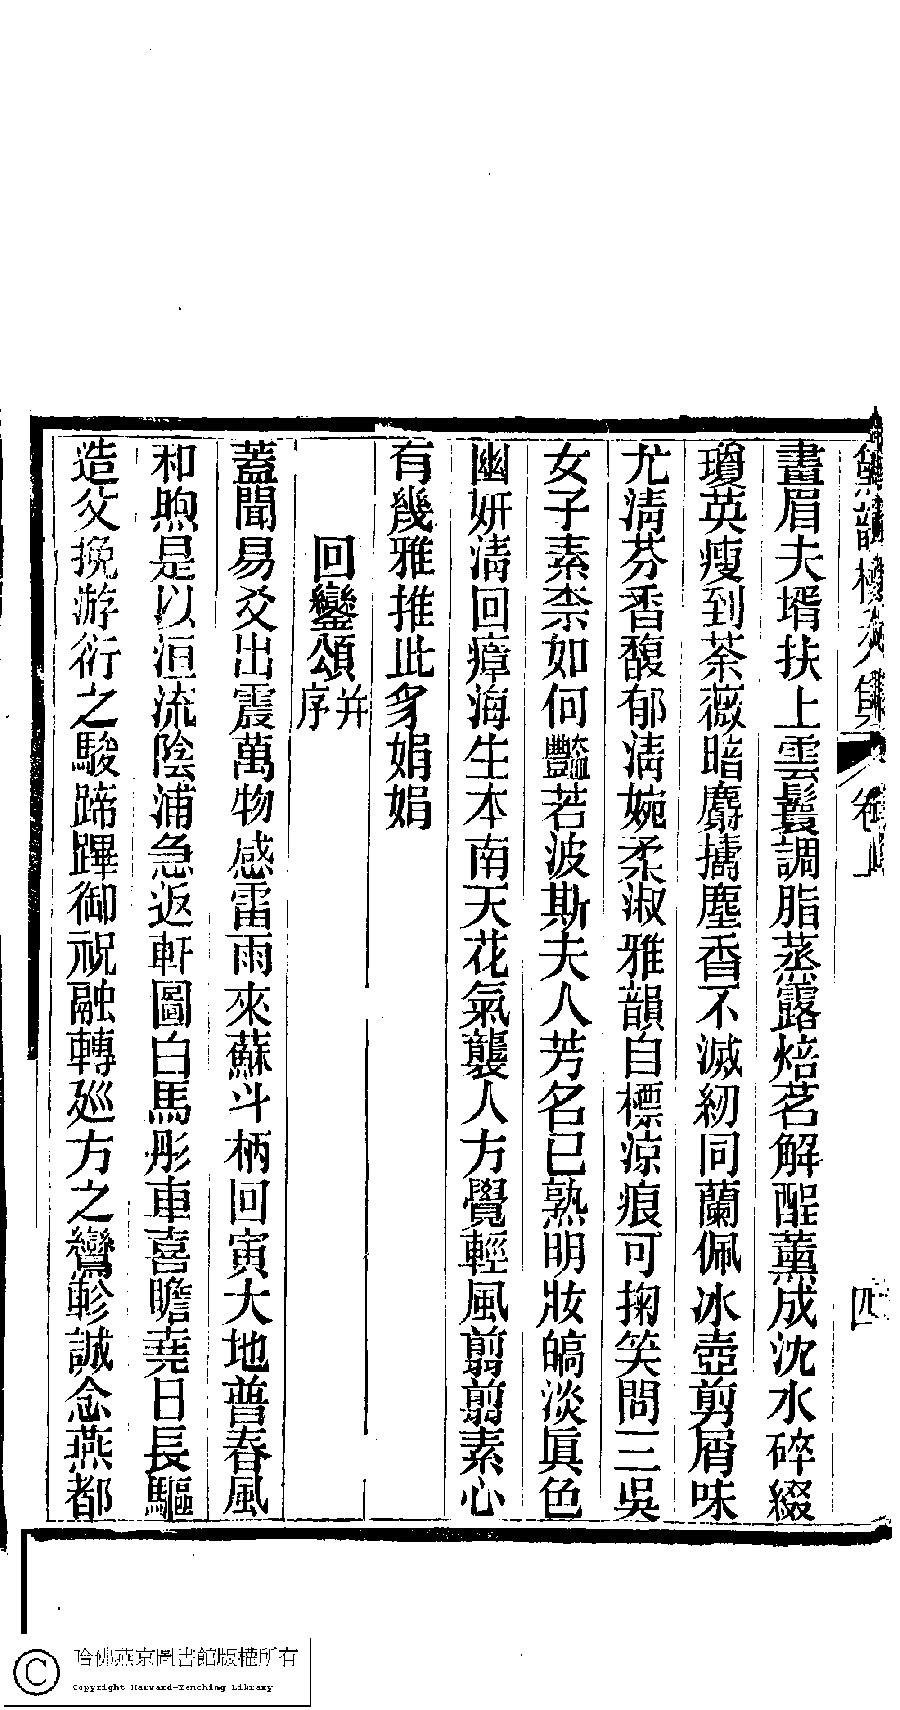 畫眉夫壻扶上雲鬟調脂蒸露焙茗解酲薰成沈水碎綴
瓊英瘦到荼薇暗麝擣塵香不滅紉同蘭佩冰壺剪屑味
尤清芬香馥郁清婉柔淑雅韻自標涼痕可掬笑問三吳
女子素柰如何豔若波斯夫人芳名已熟明妝皜淡眞色
幽妍清回瘴海生本南天花氣襲人方覺輕風翦翦素心
有幾雅推此豸娟娟
回鑾頌并序
蓋聞易爻出震萬物感雷雨來蘇斗柄回寅大地普春風
和煦是以洹流陰浦急返軒圖白馬彤車喜瞻堯日長驅
造父挽游衍之駿蹄蹕御祝融轉廵方之鸞軫誠念燕都
卷
四
哈佛燕京圖書館版權所有
Copyright Harvard-Yenching Library